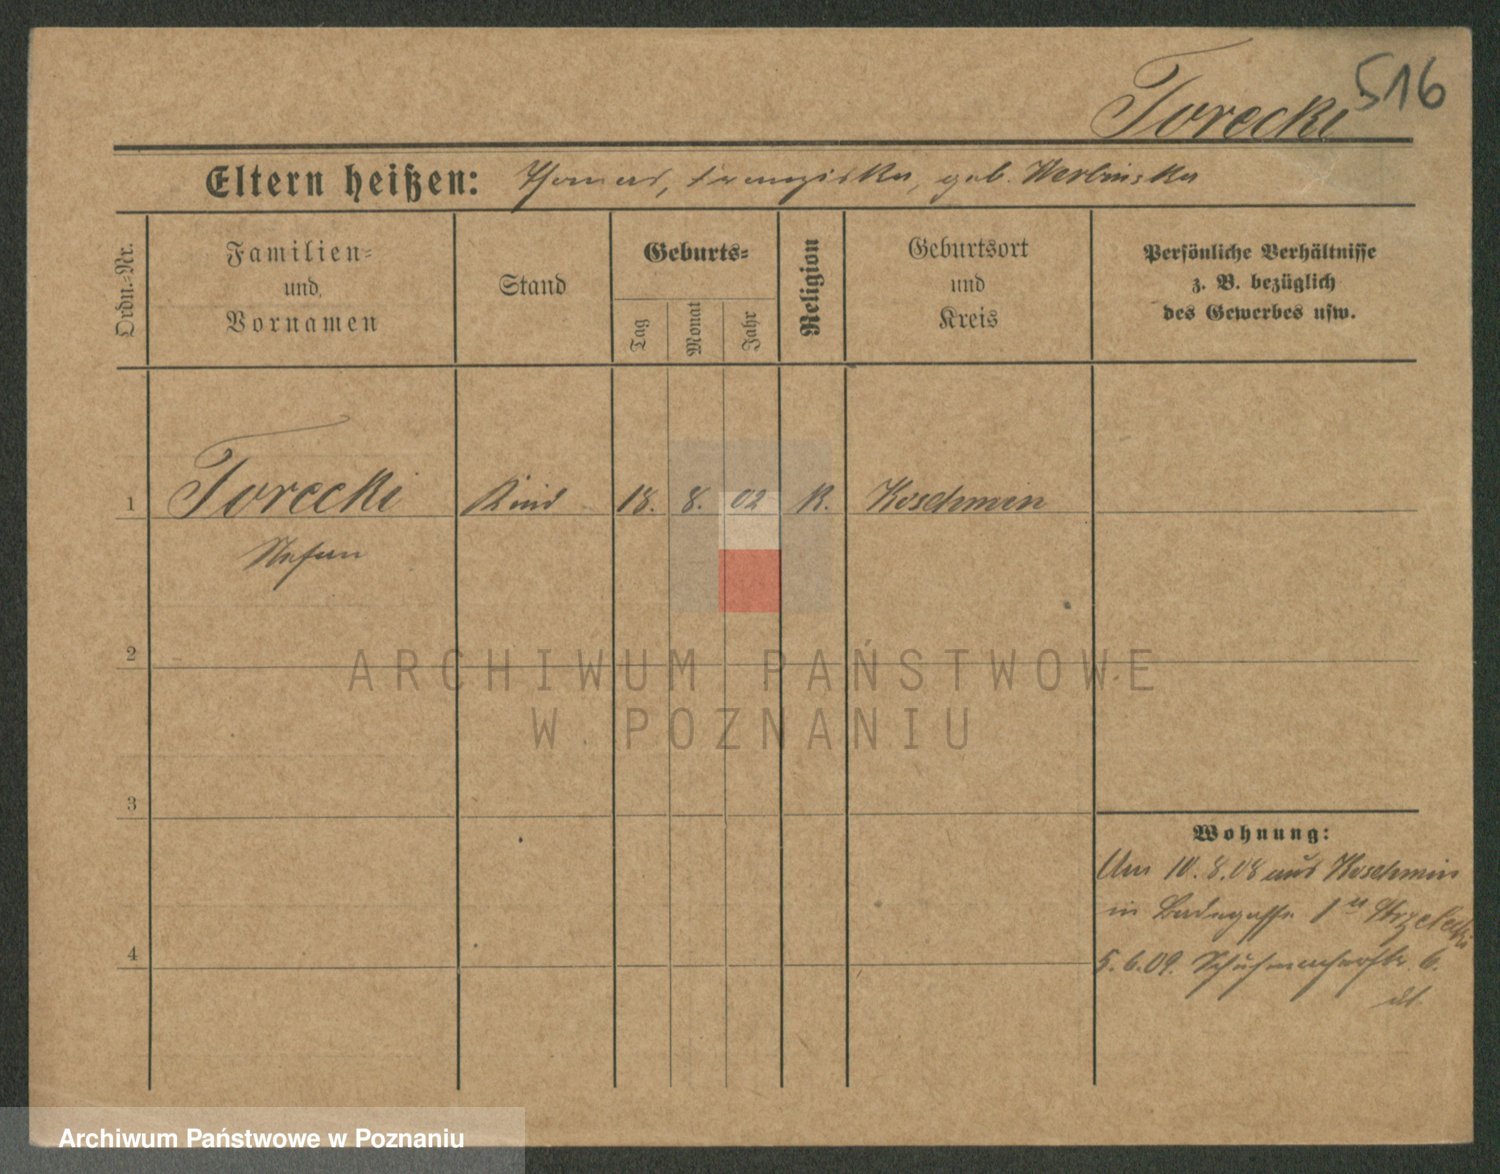 516
Torecki
Eltern heißen: Thomas, Franziska, geb. Werbinska
Ordn.-Nr.
Familien-
und
Vornamen
Stand
Geburts-
Tag
Monat
Jahr
Religion
Geburtsort
und
Kreis
Persönliche Verhältnisse
z. B. bezüglich
des Gewerbes usw.
1 Torecki Kind 18. 8. 02 K. Koschmin
Stefan
2
ARCHIWUM PAŃSTWOWE
W POZNANIU
3
Wohnung:
Am 10.8.08 aus Koschmin
in Badegasse 1 Strzelecki
4
5.6.09. Schuhmacherstr. 6.
Archiwum Państwowe w Poznaniu